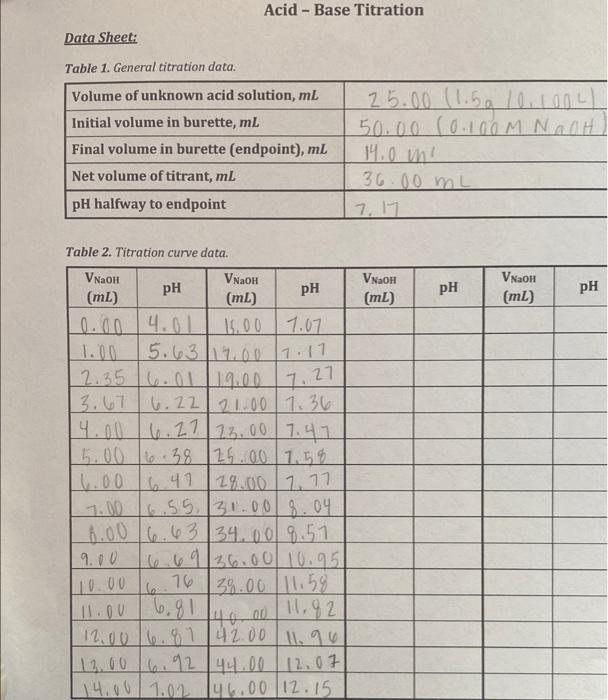 Acid – Base Titration
Data Sheet:
Table 1. General titration data.
Volume of unknown acid solution, mL 25.00 (1.5g / 0.100L)
Initial volume in burette, mL 50.00 (0.100M NaOH)
Final volume in burette (endpoint), mL 14.0 ml
Net volume of titrant, mL 36.00 mL
pH halfway to endpoint 7.17
Table 2. Titration curve data.
VNaOH (mL) pH VNaOH (mL) pH VNaOH (mL) pH VNaOH (mL) pH
0.00 4.01 15.00 7.07
1.00 5.63 17.00 7.17
2.35 6.01 19.00 7.27
3.67 6.22 21.00 7.36
4.00 6.27 23.00 7.47
5.00 6.38 25.00 7.58
6.00 6.47 28.00 7.77
7.00 6.55 31.00 8.04
8.00 6.63 34.00 8.57
9.00 6.69 36.00 10.95
10.00 6.76 38.00 11.58
11.00 6.81 40.00 11.82
12.00 6.87 42.00 11.96
13.00 6.92 44.00 12.07
14.00 7.02 46.00 12.15